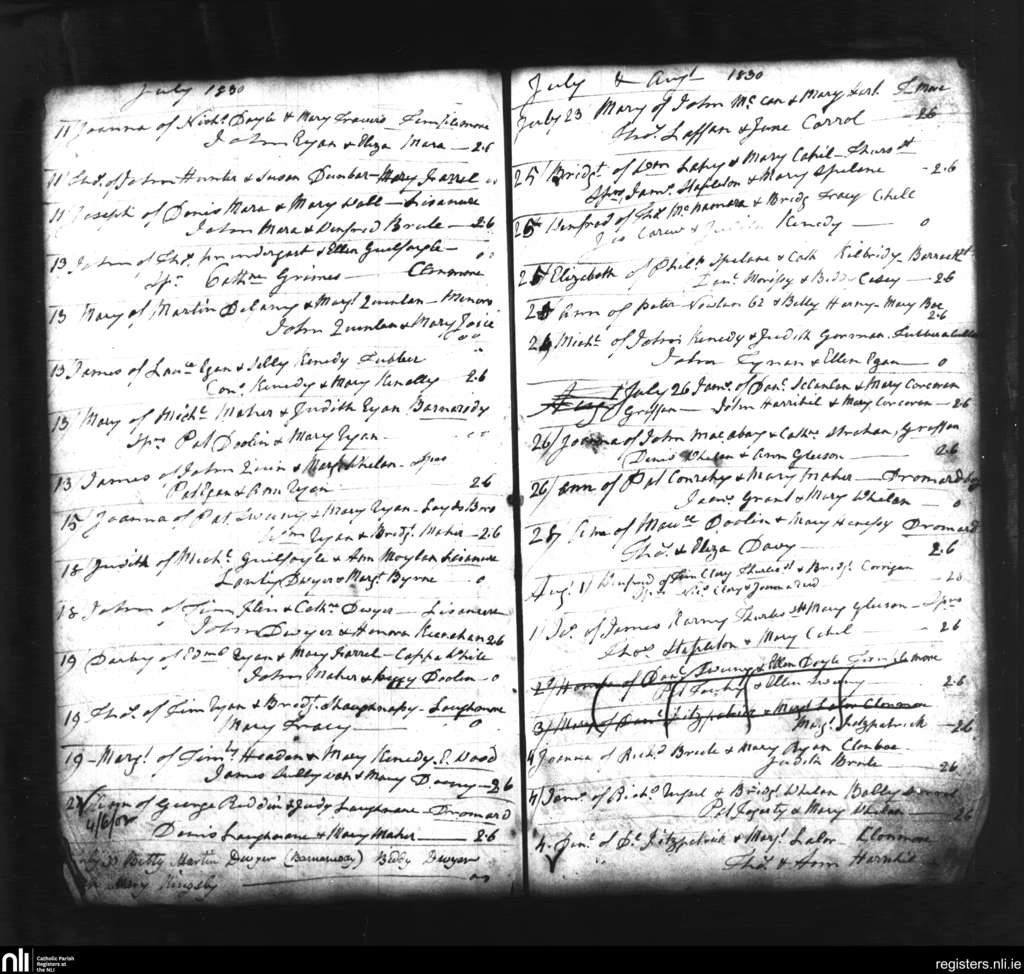 July 1830
11 Joanna of Nich. Doyle & Mary Travers Templemore
John Ryan & Eliza Mara — 2.6
11 Tho. of John Hunter & Susan Dunbar Mary Farrel
11 Joseph of Denis Mara & Mary Wall — Lisanure
John Mara & Winfrid Brule — 2.6
13 John of Tho. Prendergast & Ellen Guilfoyle —
Spr. Cathne Grimes — Clonmore
13 Mary of Martin Delany & Margt. Quinlan —
John Quinlan & Mary
13 James of Lau:ce Egan & Kenedy Tubber
Con. Kenedy & Mary Kenally 2.6
13 Mary of Michl. Maher & Judith Ryan Barnarody
Sprs Pat Doolin & Mary Ryan
13 James of John Quin & Margt. Whelan — Sprs
Pat Egan & Ann Ryan 2.6
15 Joanna of Pat. Sweeny & Mary Ryan — Loyds Boro
Wm Ryan & Bridgt. Maher — 2.6
18 Judith of Michl. Guilfoyle & Ann Moylan Lisanure
Dwyer & Margt. Byrne — 0
18 John of Tim & Cathne Dwyer — Lisanure
John Dwyer & Honora Kenahan 2.6
19 Darby of Edmd Ryan & Mary Farrel — Cappa White
John Maher & Peggy Doolin — 0
19 Tho. of Tim Ryan & Bridgt. Shaughnasy — Loughmore
Mary Tracy — 0
19 — Margt. of Timy. Headon & Mary Kenedy, E. Wood
James Sullyvan & Mary — 2.6
of George Reddin & Judy Loughnane — Dromard
4/6/
Denis Loughnane & Mary Maher — 2.6
Betty Martin Dwyer (Barnarody) Biddy Dwyer
Mary Kingsly
July & Augt 1830
July 23 Mary of John McCan & Mary Kirk T. More
Tho. Laffan & June Carrol — 2.6
25 Bridgt. of Wm Lahy & Mary Cahil — Thurst
Sprs Jams. Stapleton & Mary Spelane — 2.6
25 Winfred of Tho. McNamara & Bridg Tracy
Carew & Kenedy — 0
25 Elizabeth of Phil. Spelane & Cath Kilbridy Barnaslt.
Morissy & Biddy Casey — 2.6
Ann of Peter Newlan 62 & Betty Harny — Mary
2.6
Michl. of John Kenedy & Judith Gorman
John Tynan & Ellen Egan — 0
July 26 Jams. of Dan. Scanlan & Mary Corcoran
Graffan — John Harrihil & Mary Corcoran — 2.6
26 Joanna of John & Cathne Strahan, Graffan
Denis Whelan & Ann Gleeson — 2.6
26 Ann of Pat Conrahy & Mary Maher — Dromard
James Grant & Mary Whelan — 0
28 of Mauce Doolin & Mary Henesy Dromard
Tho. & Eliza Davy — 2.6
Augt. 1 Winfred of Tim Clary Thurlestt & Bridgt. Corrigan
Clary & Joanna
1 Jo. of James Karny Thurles St Mary Gleeson — Sprs
Thos Stapleton & Mary Cahil 2.6
2 Honora of Danl. Sweeny & Ellen Doyle Templemore
Pat & Ellen Sweeny 2.6
3 Mary of Danl. Fitzpatrick & Margt Lalor Clonmore
Margt. Fitzpatrick — 2.6
4 Joanna of Richd Brule & Mary Ryan Clonboe
Judith Brule — 2.6
4 of Richd & Bridgt. Whelan
Pat Fogarty & Mary Whelan 2.6
4 of Fitzpatrick & Margt. Lalor Clonmore
Tho. & Ann
nli
Catholic Parish
Registers at
the NLI
registers.nli.ie